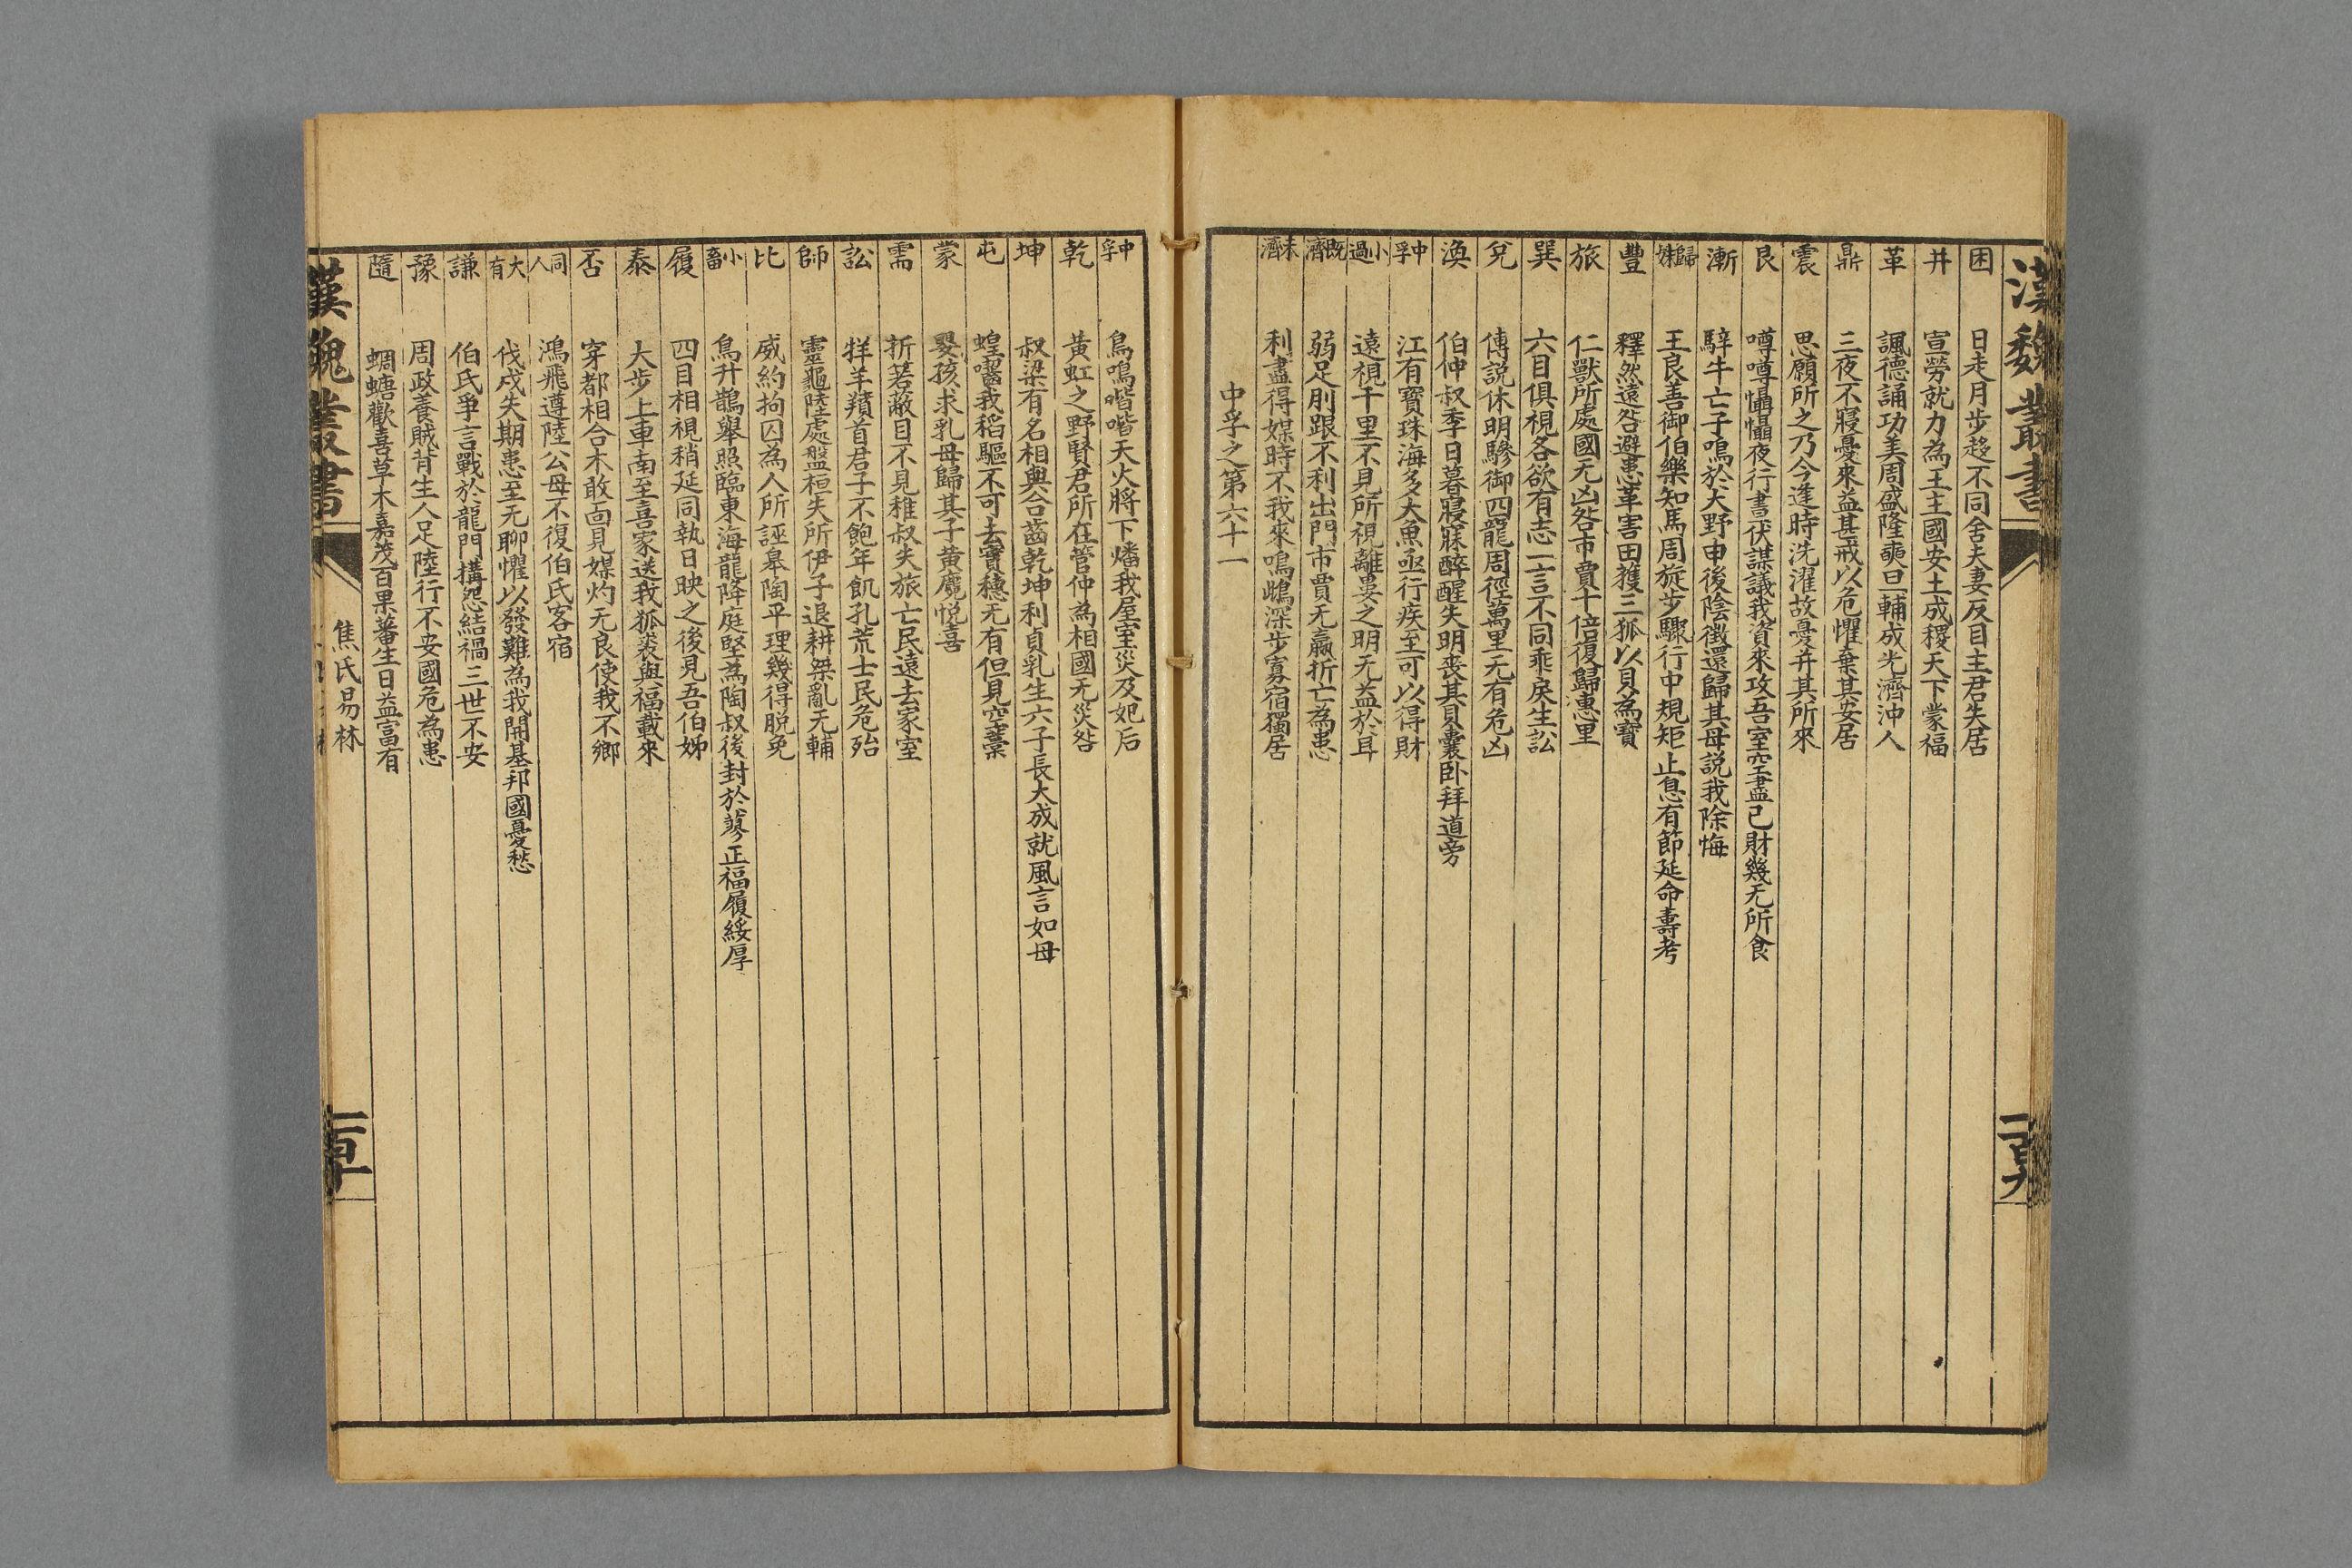 漢魏叢書
困 日走月步趍不同舍夫妻反目主君失居
井 宣勞就力為王主國安土成稷天下蒙福
革 諷德誦功美周盛隆奭旦輔成光濟沖人
鼎 三夜不寢憂來益甚戒以危懼棄其安居
震 思願所之乃今逢時洗濯故憂并其所來
艮 噂噂懾懾夜行晝伏謀議我資來攻吾室空盡己財幾无所食
漸 騂牛亡子鳴於大野申後陰徵還歸其母說我除悔
歸妹 王良善御伯樂知馬周旋步驟行中規矩止息有節延命壽考
豐 釋然遠咎避患革害田獲三狐以貝為寶
旅 仁獸所處國无凶咎市賈十倍復歸惠里
巽 六目俱視各欲有志一言不同乖戾生訟
兌 傅說休明驂御四龍周徑萬里无有危凶
渙 伯仲叔季日暮寢寐醉醒失明喪其貝囊卧拜道旁
中孚 江有寶珠海多大魚亟行疾至可以得財
小過 遠視千里不見所視離婁之明无益於耳
既濟 弱足刖跟不利出門市賈无贏折亡為患
未濟 利盡得媒時不我來鳴鴟深步寡宿獨居
中孚之第六十一
中孚 鳥鳴喈喈天火將下燔我屋室災及妃后
乾 黃虹之野賢君所在管仲為相國无災咎
坤 叔梁有名相與合齒乾坤利貞乳生六子長大成就風言如母
屯 蝗嚙我稻驅不可去實穗无有但見空藁
蒙 嬰孩求乳母歸其子黃麑悅喜
需 折若蔽目不見稚叔失旅亡民遠去家室
訟 牂羊羵首君子不飽年飢孔荒士民危殆
師 靈龜陸處盤桓失所伊子退耕桀亂无輔
比 威約拘囚為人所誣皋陶平理幾得脫免
小畜 鳥升鵲舉照臨東海龍降庭堅為陶叔後封於蓼正福履綏厚
履 四目相視稍延同執日昳之後見吾伯姊
泰 大步上車南至喜家送我狐裘與福載來
否 穿都相合木敢面見媒灼无良使我不鄉
同人 鴻飛遵陸公母不復伯氏客宿
大有 伐戍失期患至无聊懼以發難為我開基邦國憂愁
謙 伯氏爭言戰於龍門搆怨結禍三世不安
豫 周政養賊背生人足陸行不安國危為患
隨 蜩螗歡喜草木嘉茂百果蕃生日益富有
漢魏叢書
焦氏易林